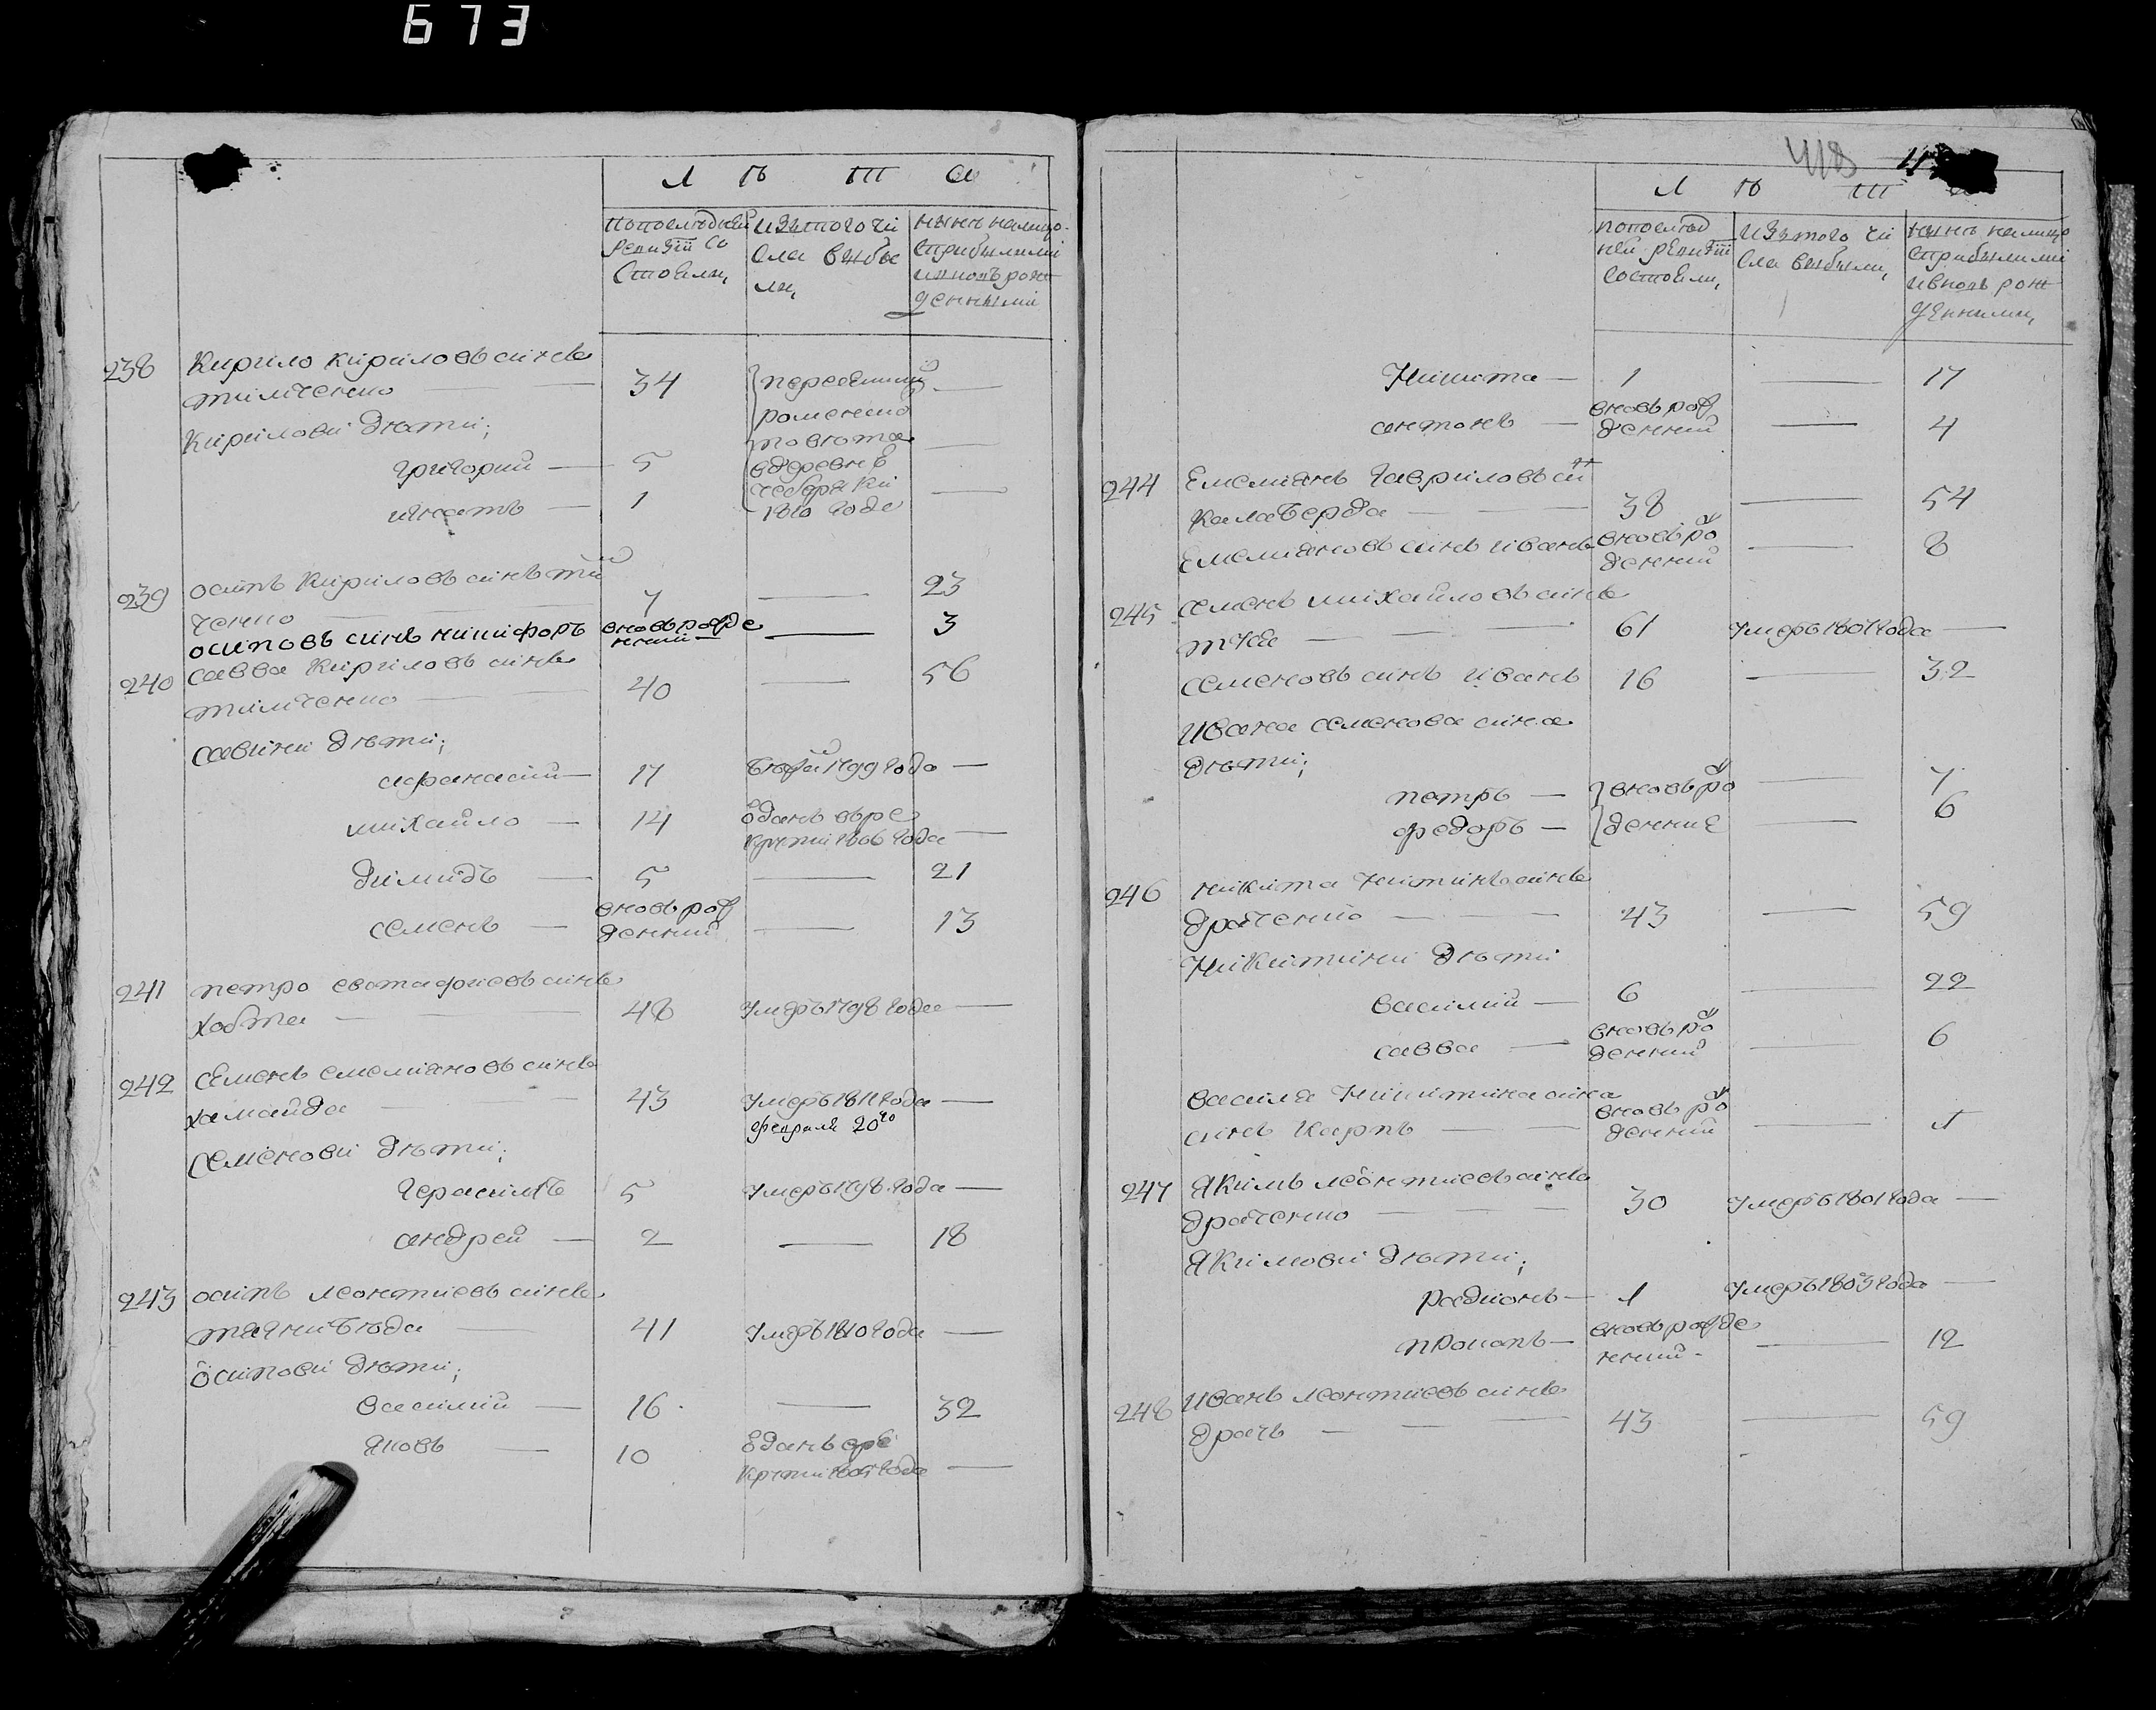 673
Л Ѣ Т А
попоследней ревизїи со стояли,
изътого чи сла выбы ли,
нынѣ налицо. сприбылими ивновъ рож денными
238 Кирило Кириловъ синъ
тимченко — 34 переселился —
Кирилови дѣти;
григорий — 5 —
вдеревнѣ
игнатъ — 1 1810 года —
239 осипъ Кириловъ синъ тим
ченко 7 — 23
осиповъ синъ никифоръ вновьрожде нний — 3
240 савва Кириловъ синъ
тимченко — 40 — 56
савини дѣти;
афанасий — 17 1799 года —
михайло — 14 óданъ вре крути 1806 года —
димидъ — 5 — 21
семенъ — вновьрож денний — 13
241 петро евстафиевъ синъ
хобта — 48 Умеръ 1798 года —
242 Семенъ емелияновъ синъ
хамайда 43 Умеръ 1811 года —
февраля 20го
Семенови дѣти;
Герасимъ 5 Умеръ 1798 года —
андрей — 2 — 18
243 осипъ леонтиевъ синъ
— 41 Умеръ 1810 года —
óсипови дѣти;
василий — 16 — 32
яковъ — 10 óданъ вре крути года —
418
Л Ѣ Т
попослед ней ревизїи состояли,
изътого чи сла выбыли,
нынѣ налицо сприбылими ивновь рож денними,
Никита — 1 — 17
антонъ — вновьрож денний — 4
244 Емелиянъ Гавриловъ син
Калаберда — 38 — 54
Емелияновъ синъ иванъ вновьрож денний — 8
245 семенъ михайловъ синъ
— 61 Умеръ 1801 года —
семеновъ синъ иванъ 16 — 32
ивана семенова сина
дѣти;
петръ — вновьрож — 7
федоръ — денние — 6
246 никита Никитинъ синъ
драченко — 43 — 59
Никитини дѣти
василий — 6 — 22
савва — вновьрож денний — 6
василя Никитина сина
синъ Карпъ — вновьрож денний — 1
247 Якимъ леóнтиевъ синъ
драченко — 30 Умеръ 1801 года —
Якимови дѣти;
радионъ — 1 Умеръ 1805 года —
прокопъ — вновьрожде нний — 12
248 иванъ леонтиевъ синъ
драчъ — 43 — 59